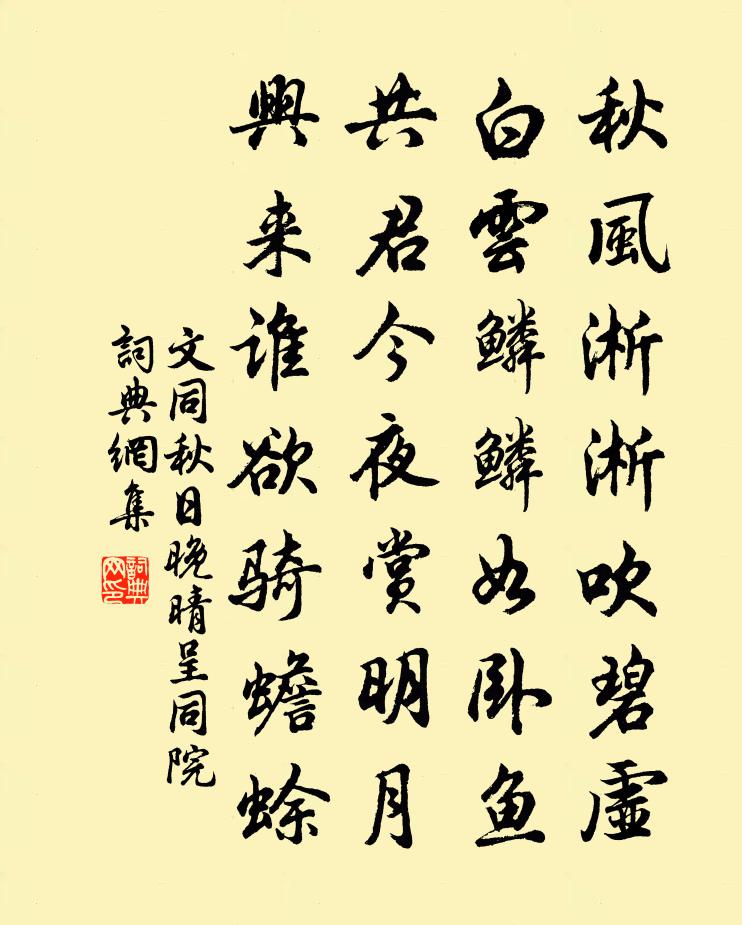 秋風淅淅吹碧虛
白雲鱗鱗如卧鱼
共君今夜赏明月
興来谁欲骑蟾蜍
文同秋日晚晴呈同院
詞典網集
詞典
网印